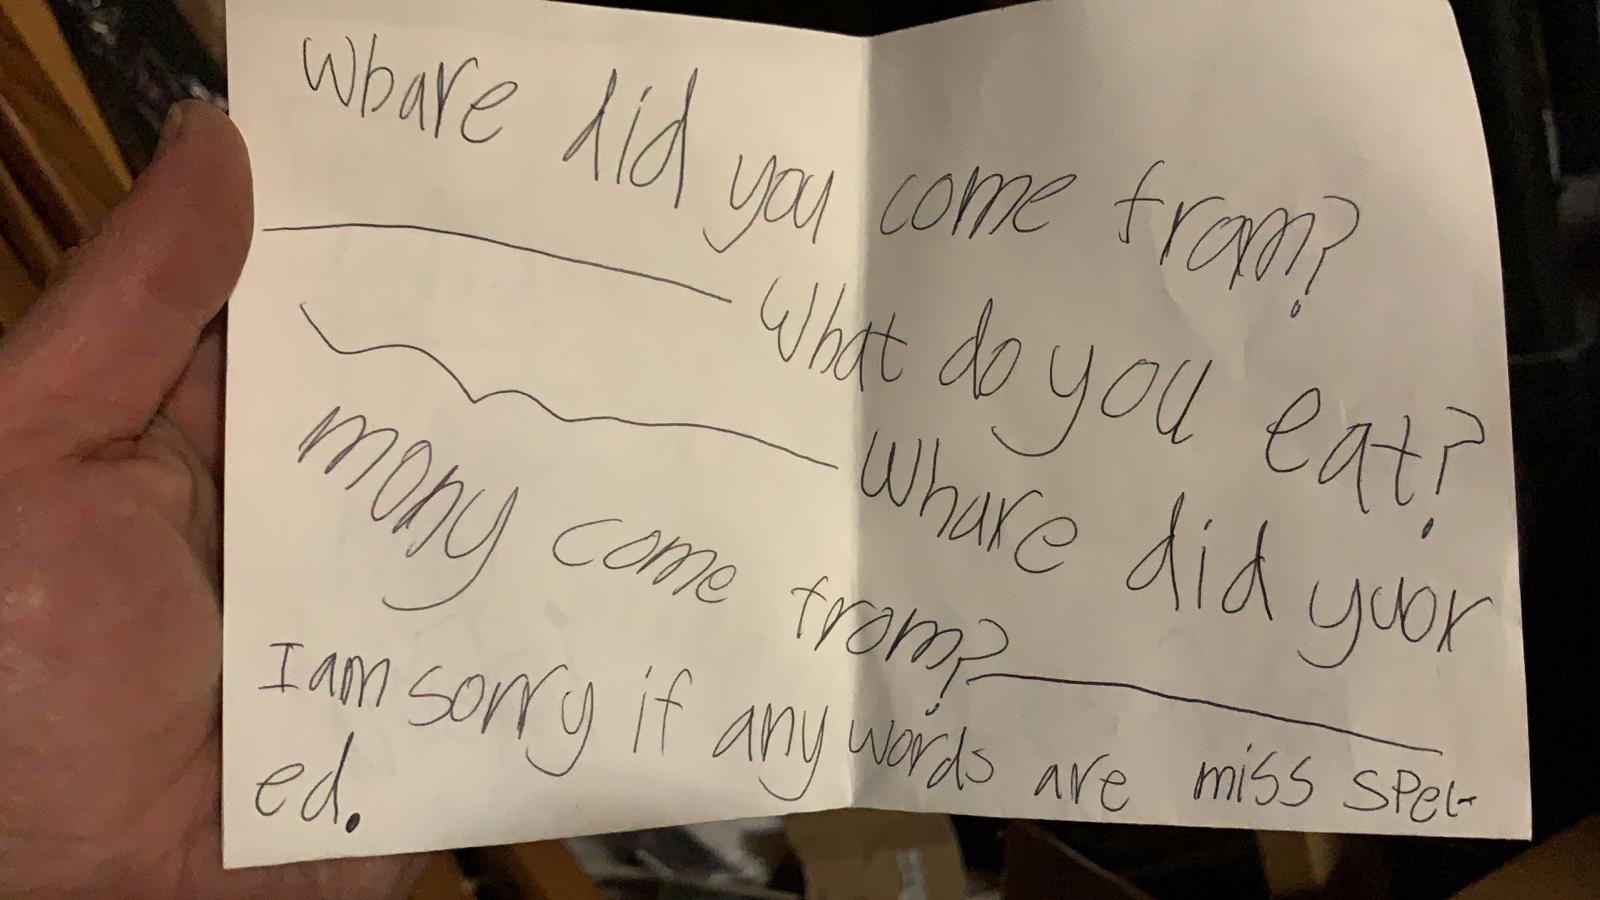 Whare did you come fram?
What do you eat?
Whare did yuor
mony come from?
I am sorry if any words are miss spel-
ed.